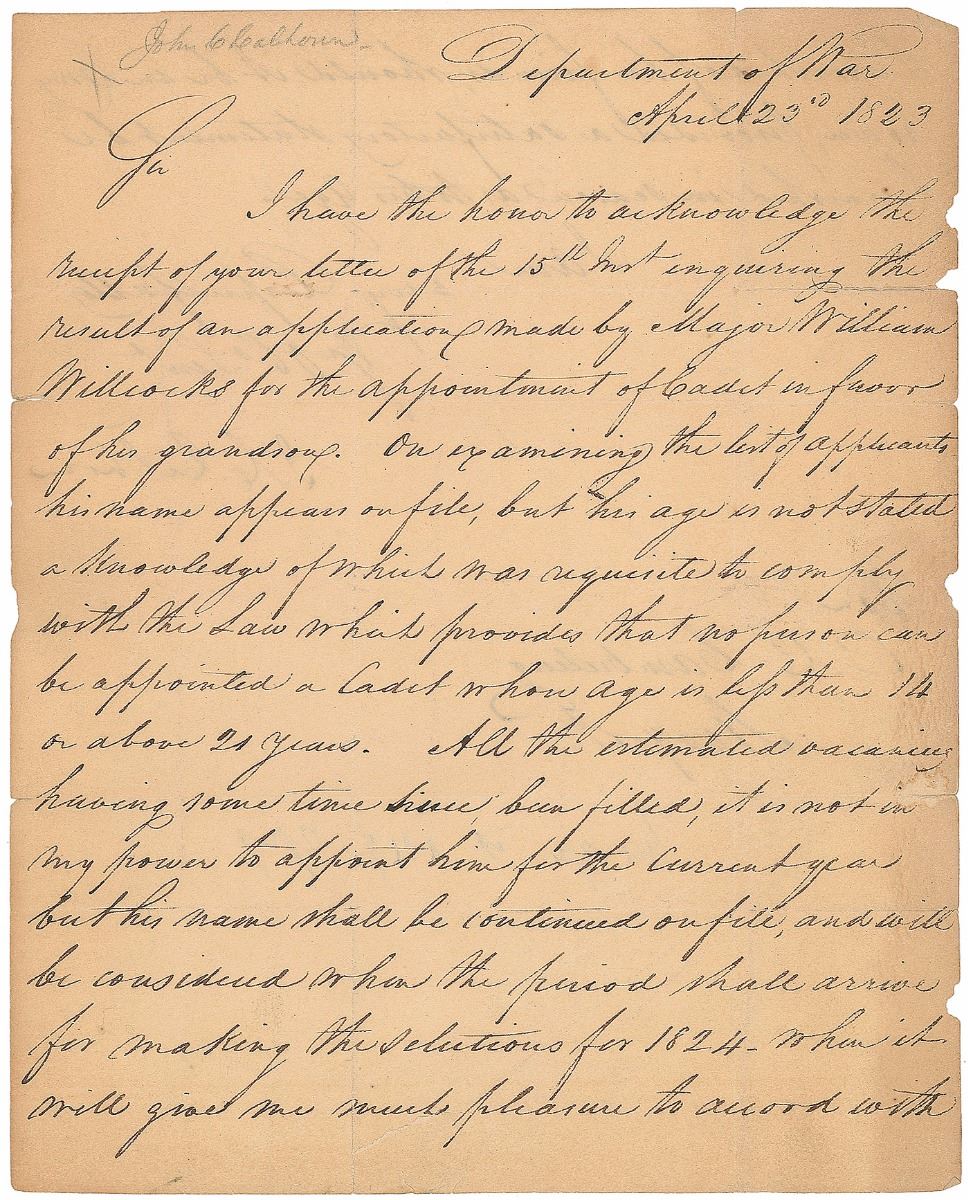 John C Calhoun -
Department of War
April 23rd 1823
Sir
I have the honor to acknowledge the
receipt of your letter of the 15th Inst enquiring the
result of an application made by Major William
Willcocks for the appointment of Cadet in favor
of his grandson. On examining the list of applicants
his name appears on file, but his age is not stated
a knowledge of which was requisite to comply
with the Law which provides that no person can
be appointed a Cadet whose age is less than 14
or above 21 years. All the estimated vacancies
having some time since, been filled, it is not in
my power to appoint him for the current year
but his name shall be continued on file, and will
be considered when the period shall arrive
for making the selections for 1824 - when it
will give me much pleasure to accord with